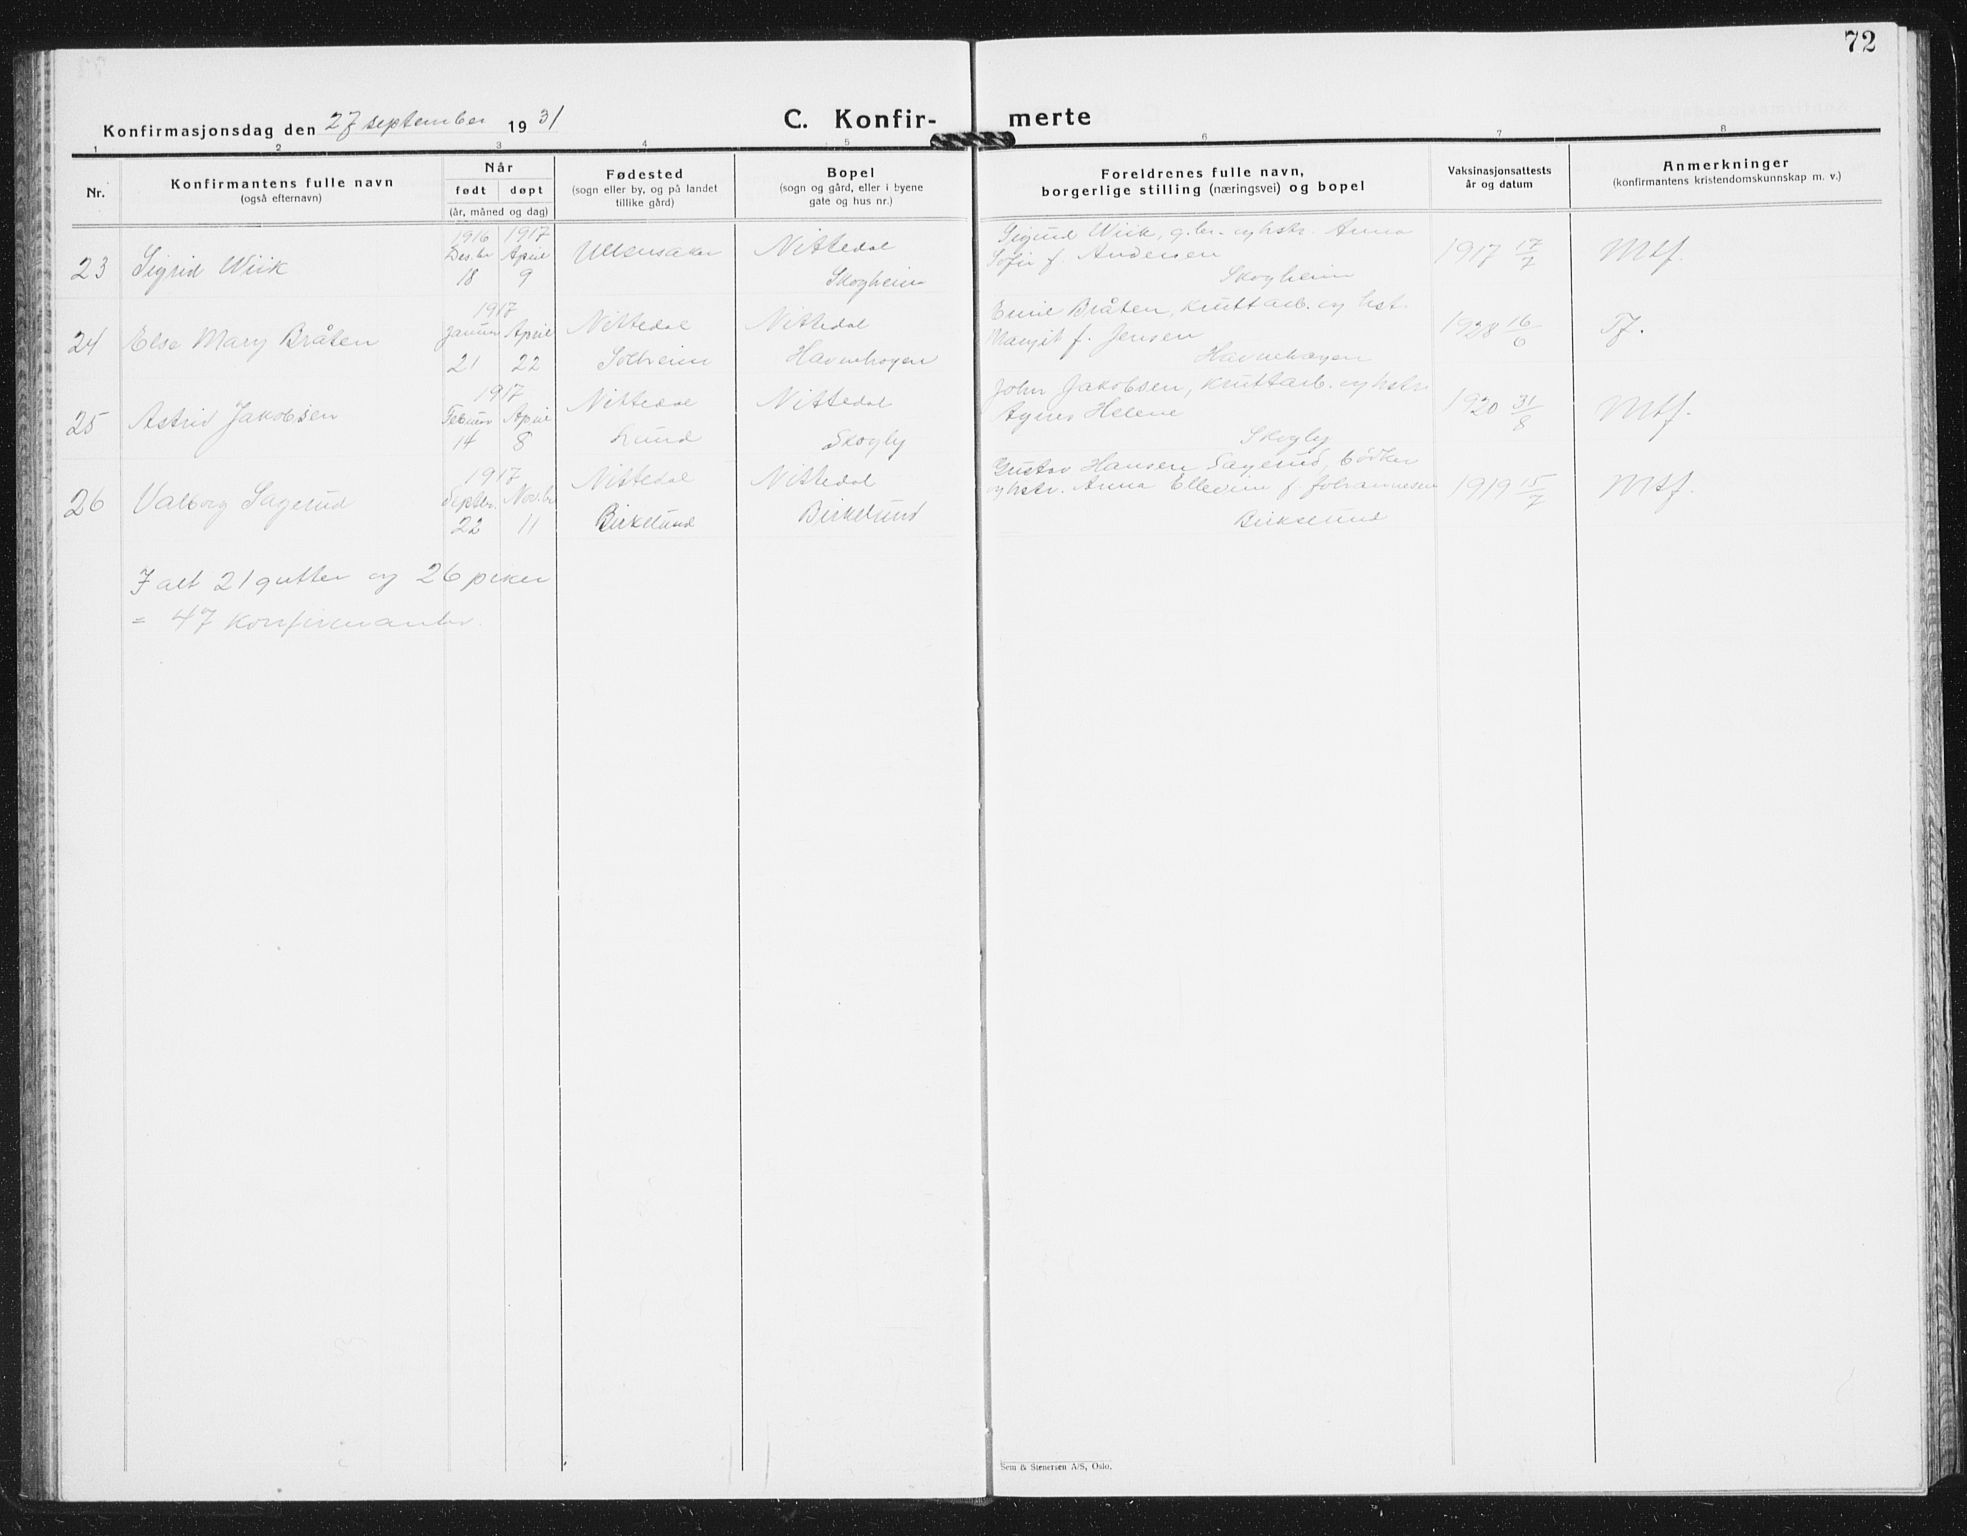 72
Konfirmasjonsdag den 27 september 1931
C. Konfirmerte
1 2 3 4 5 6 7 8
Nr.
Konfirmantens fulle navn
(også efternavn)
Når
født døpt
(år, måned og dag)
Fødested
(sogn eller by, og på landet
tillike gård)
Bopel
(sogn og gård, eller i byene
gate og hus nr.)
Foreldrenes fulle navn,
borgerlige stilling (næringsvei) og bopel
Vaksinasjonsattests
år og datum
Anmerkninger
(konfirmantens kristendomskunnskap m. v.)
23 Sigrid Wiik
1916 Des.br 18
1917 April 9
Ullensaker
Nittedal
Skogheim
Sigurd Wiik, g.br. og hstr. Anna
Sofie f. Andersen
Skogheim
1917 17/7
Mtf.
24 Else Mary Bråten
1917
Januar 21
April 22
Nittedal
Solheim
Nittedal
Havnehagen
Emil Bråten, kruttarb. og hst.
Margit f. Jensen
Havnehagen
1928 16/6
Tf.
25 Astrid Jakobsen
1917
Februar 14
April 8
Nittedal
Lund
Nittedal
Skogly
John Jakobsen, kruttarb. og hstr.
Agnes Helene
Skogly
1920 31/8
Mtf.
26 Valborg Sagerud
1917
Septbr. 22
Nov.br 11
Nittedal
Birkelund
Nittedal
Birkelund
Gustav Hansen Sagerud, bødker
og hstr. Anna Ellevine f. Johannesen
Birkelund
1919 15/7
Mtf.
I alt 21 gutter og 26 piker
= 47 konfirmanter.
Sem & Stenersen A/S, Oslo.